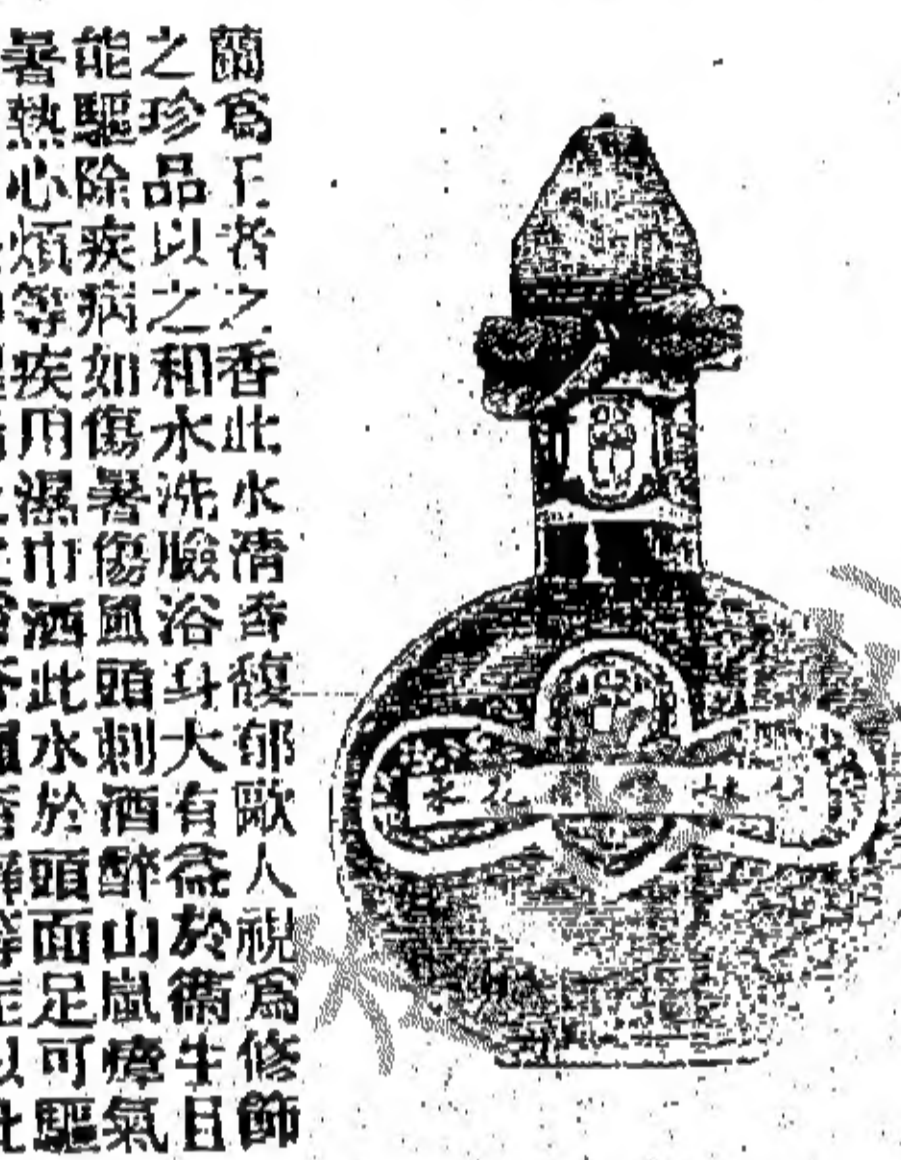 蘭為王者之香此水清香馥郁歐人視為修飾
之珍品以之和水洗臉浴身大有益於衞生且
能驅除疾病如傷暑傷風頭刺酒醉山嵐瘴氣
暑熱心煩等疾用濕巾洒此水於頭面足可驅